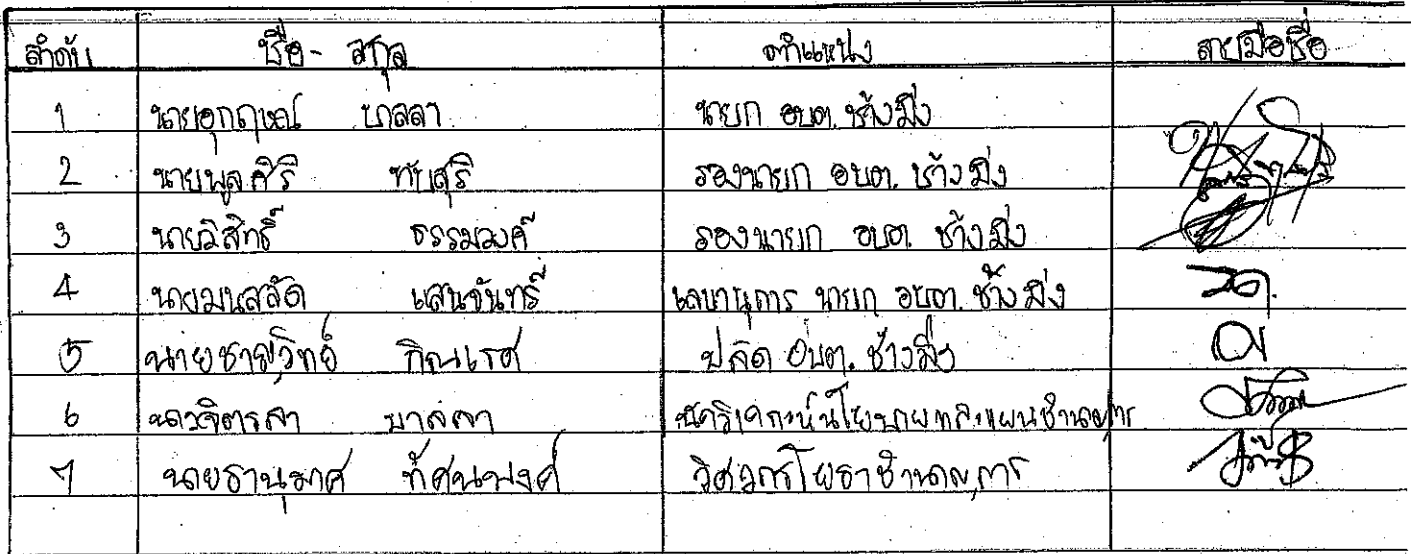 ลำดับ ชื่อ - สกุล ตำแหน่ง ลายมือชื่อ
1 นายอุกฤษณ์ นายก อบต. ช้างมิ่ง
2 นายพูลศิริ ทันสุริ รองนายก อบต. ช้างมิ่ง
3 นายวิสิทธิ์ ธรรมวงค์ รองนายก อบต. ช้างมิ่ง
4 นายมนสลัด แสนจันทร์ เลขานุการ นายก อบต. ช้างมิ่ง
5 นายชาญวิทย์ กิณเรศ ปลัด อบต. ช้างมิ่ง
6 นักวิเคราะห์นโยบายและแผนชำนาญการ
7 นายธานุมาศ ทัศนพงศ์ วิศวกรโยธาชำนาญการ